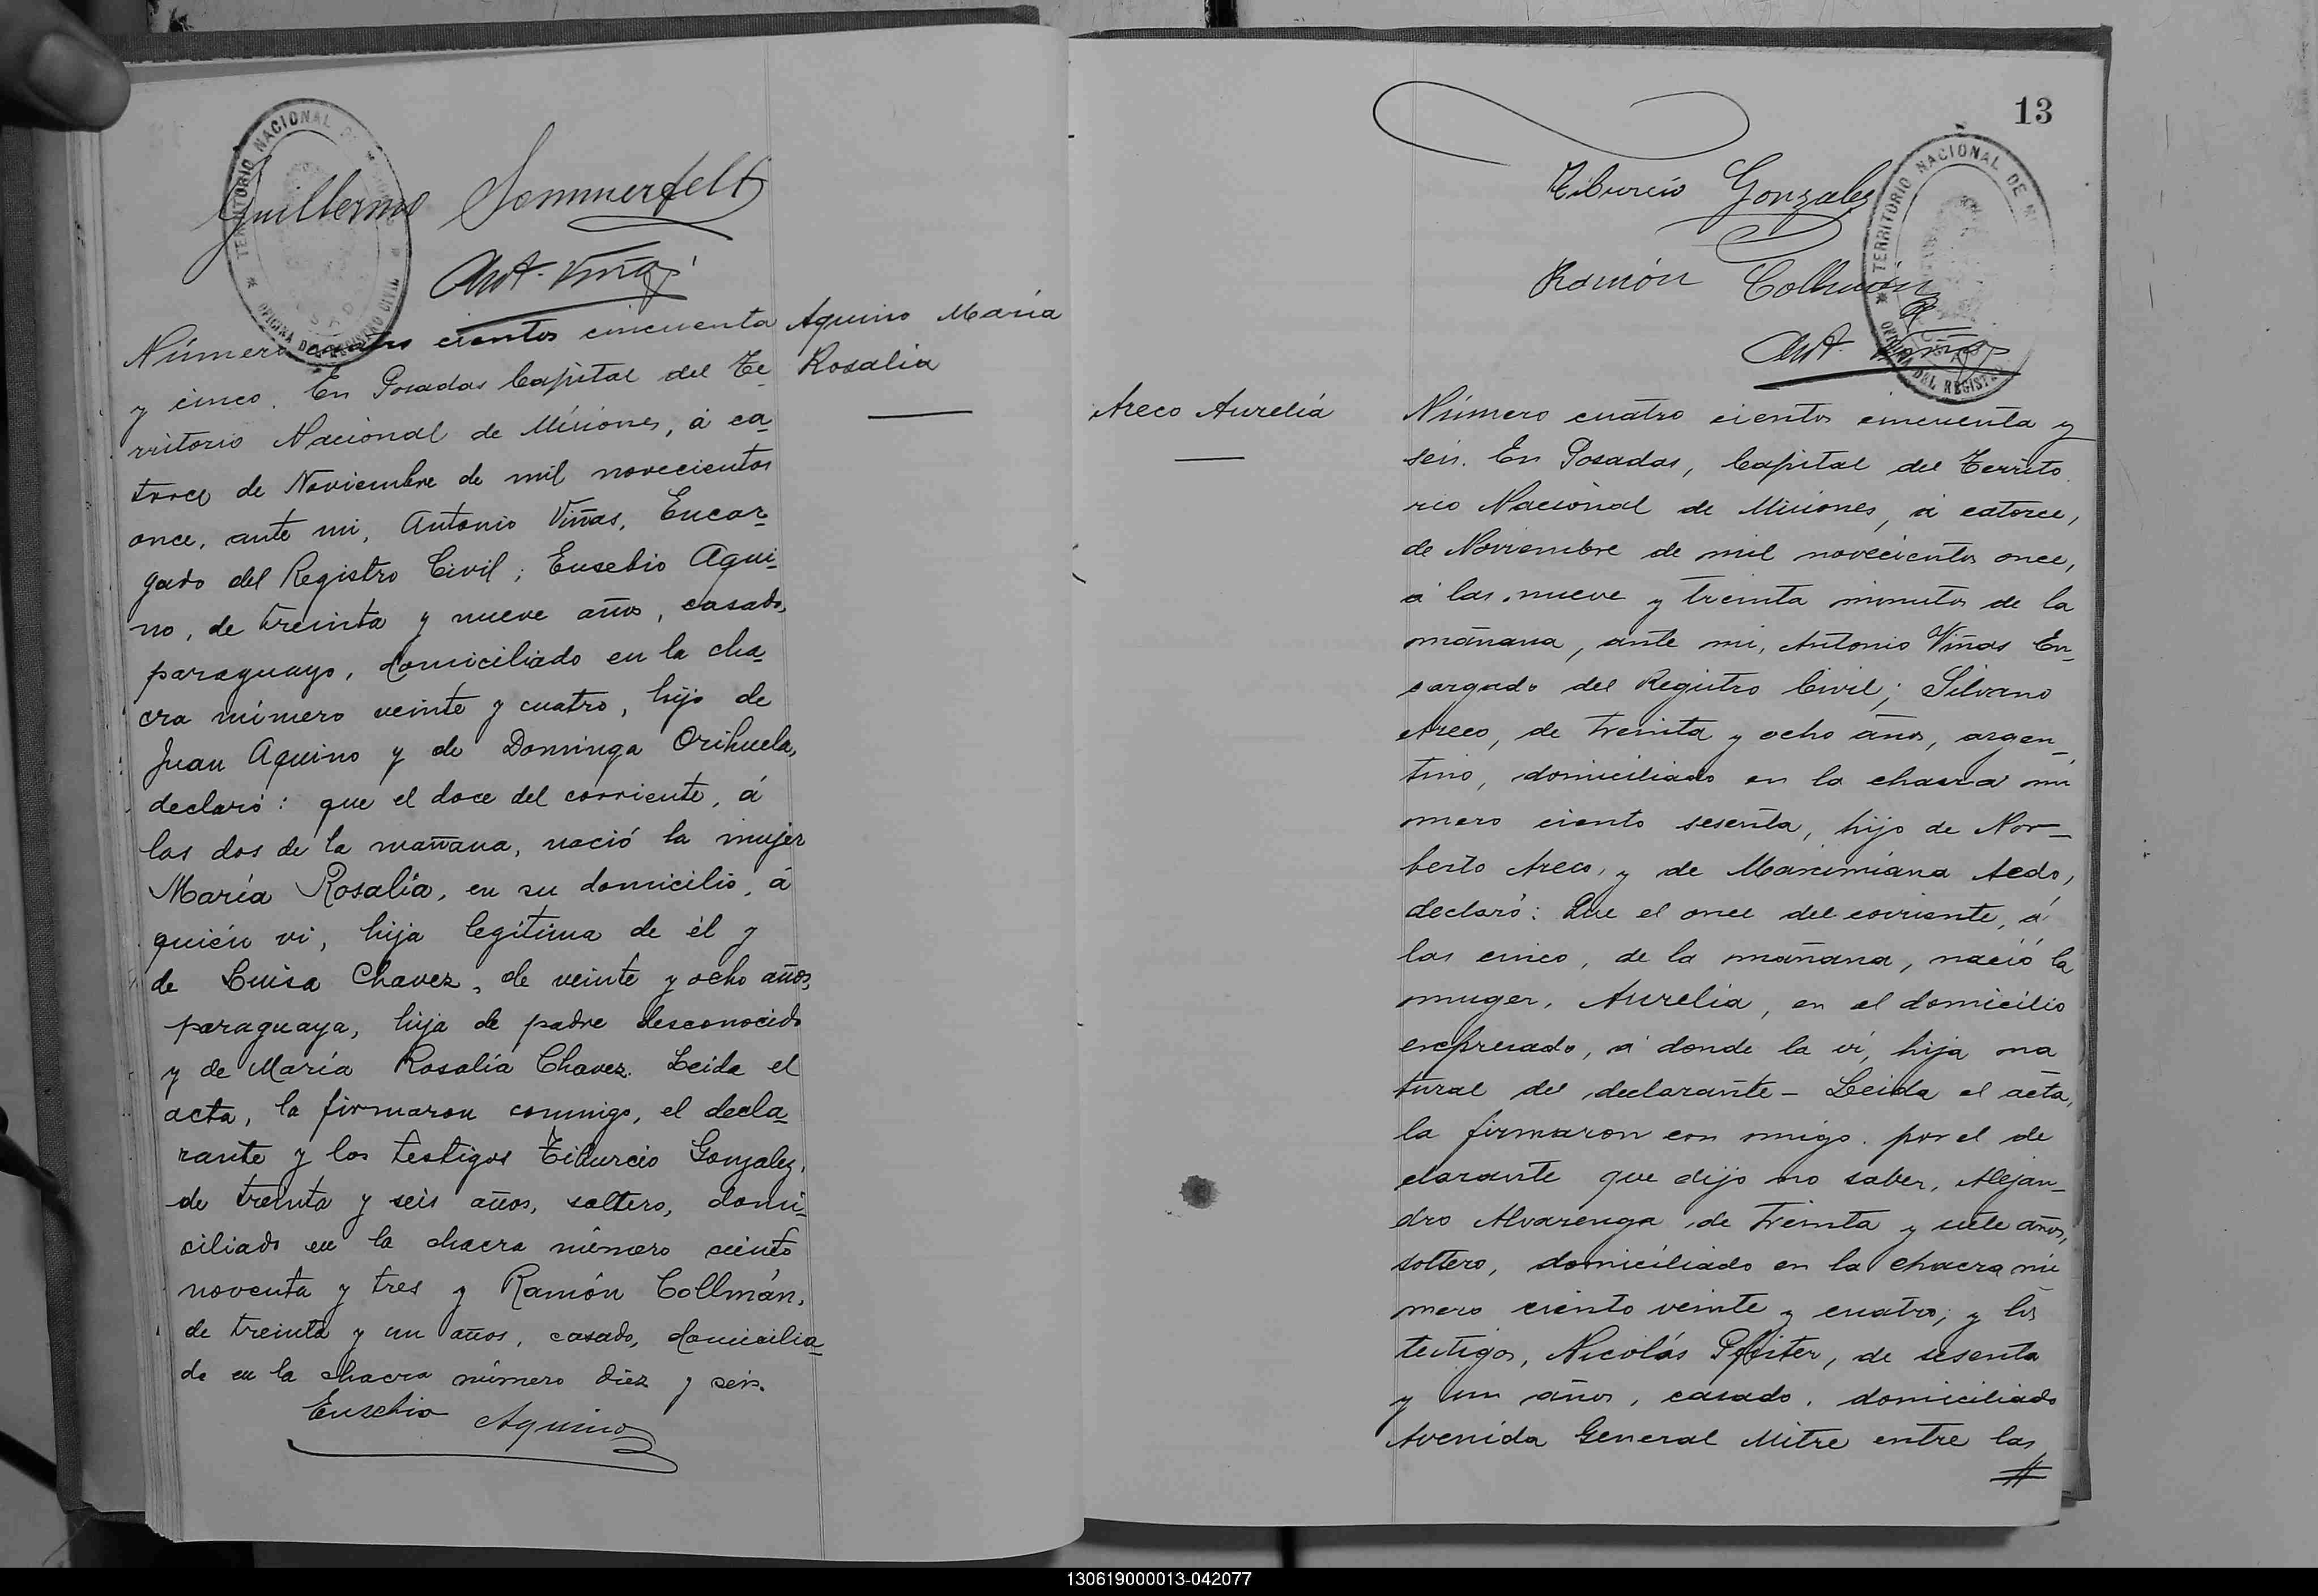 TERRITORIO NACIONAL DE
OFICINA DEL REGISTRO CIVIL
Guillermo Sommerfelt
Ant. Viñas
Aquino María
Rosalia
Número cuatro cientos cincuenta
y cinco. En Posadas Capital del Te
rritorio Nacional de Misiones, á ca
torce de Noviembre de mil novecientos
once, ante mi, Antonio Viñas, Encar
gado del Registro Civil; Eusebio Aqui
no, de treinta y nueve años, casado,
paraguayo, domiciliado en la cha
cra número veinte y cuatro, hijo de
Juan Aquino y de Dominga Orihuela,
declaró: que el doce del corriente, á
las dos de la mañana, nació la mujer
María Rosalía, en su domicilio, á
quién vi, hija legítima de él y
de Luisa Chavez, de veinte y ocho años,
paraguaya, hija de padre desconocido
y de María Rosalía Chavez. Leida el
acta, la firmaron conmigo, el decla
rante y los testigos Tiburcio Gonzalez,
de treinta y seis años, soltero, domi
ciliado en la chacra número ciento
noventa y tres y Ramón Collmán,
de treinta y un años, casado, domicilia
do en la chacra número diez y seis.
Eusebio Aquino
13
TERRITORIO NACIONAL DE
OFICINA DEL REGIST
Tiburcio Gonzalez
Ramón Collmán
Ant. Viñas
Areco Aurelia
Número cuatro cientos cincuenta y
seis. En Posadas, Capital del Territo
rio Nacional de Misiones, á catorce,
de Noviembre de mil novecientos once,
á las nueve y treinta minutos de la
mañana, ante mi, Antonio Viñas En
cargado del Registro Civil; Silvano
Areco, de treinta y ocho años, argen
tino, domiciliado en la chacra nú
mero ciento sesenta, hijo de Nor
berto Areco, y de Marcimiana Aedo,
declaró: Que el once del corriente, á
las cinco, de la mañana, nació la
muger, Aurelia, en el domicilio
expresado, á donde la ví, hija na
tural del declarante - Leida el acta,
la firmaron con migo. por el de
clarante que dijo no saber, Alejan
dro Alvarenga de treinta y siete años,
soltero, domiciliado en la chacra nú
mero ciento veinte y cuatro; y los
testigos, Nicolás Pfister, de sesenta
y un años, casado, domiciliado
Avenida General Mitre entre las
130619000013-042077